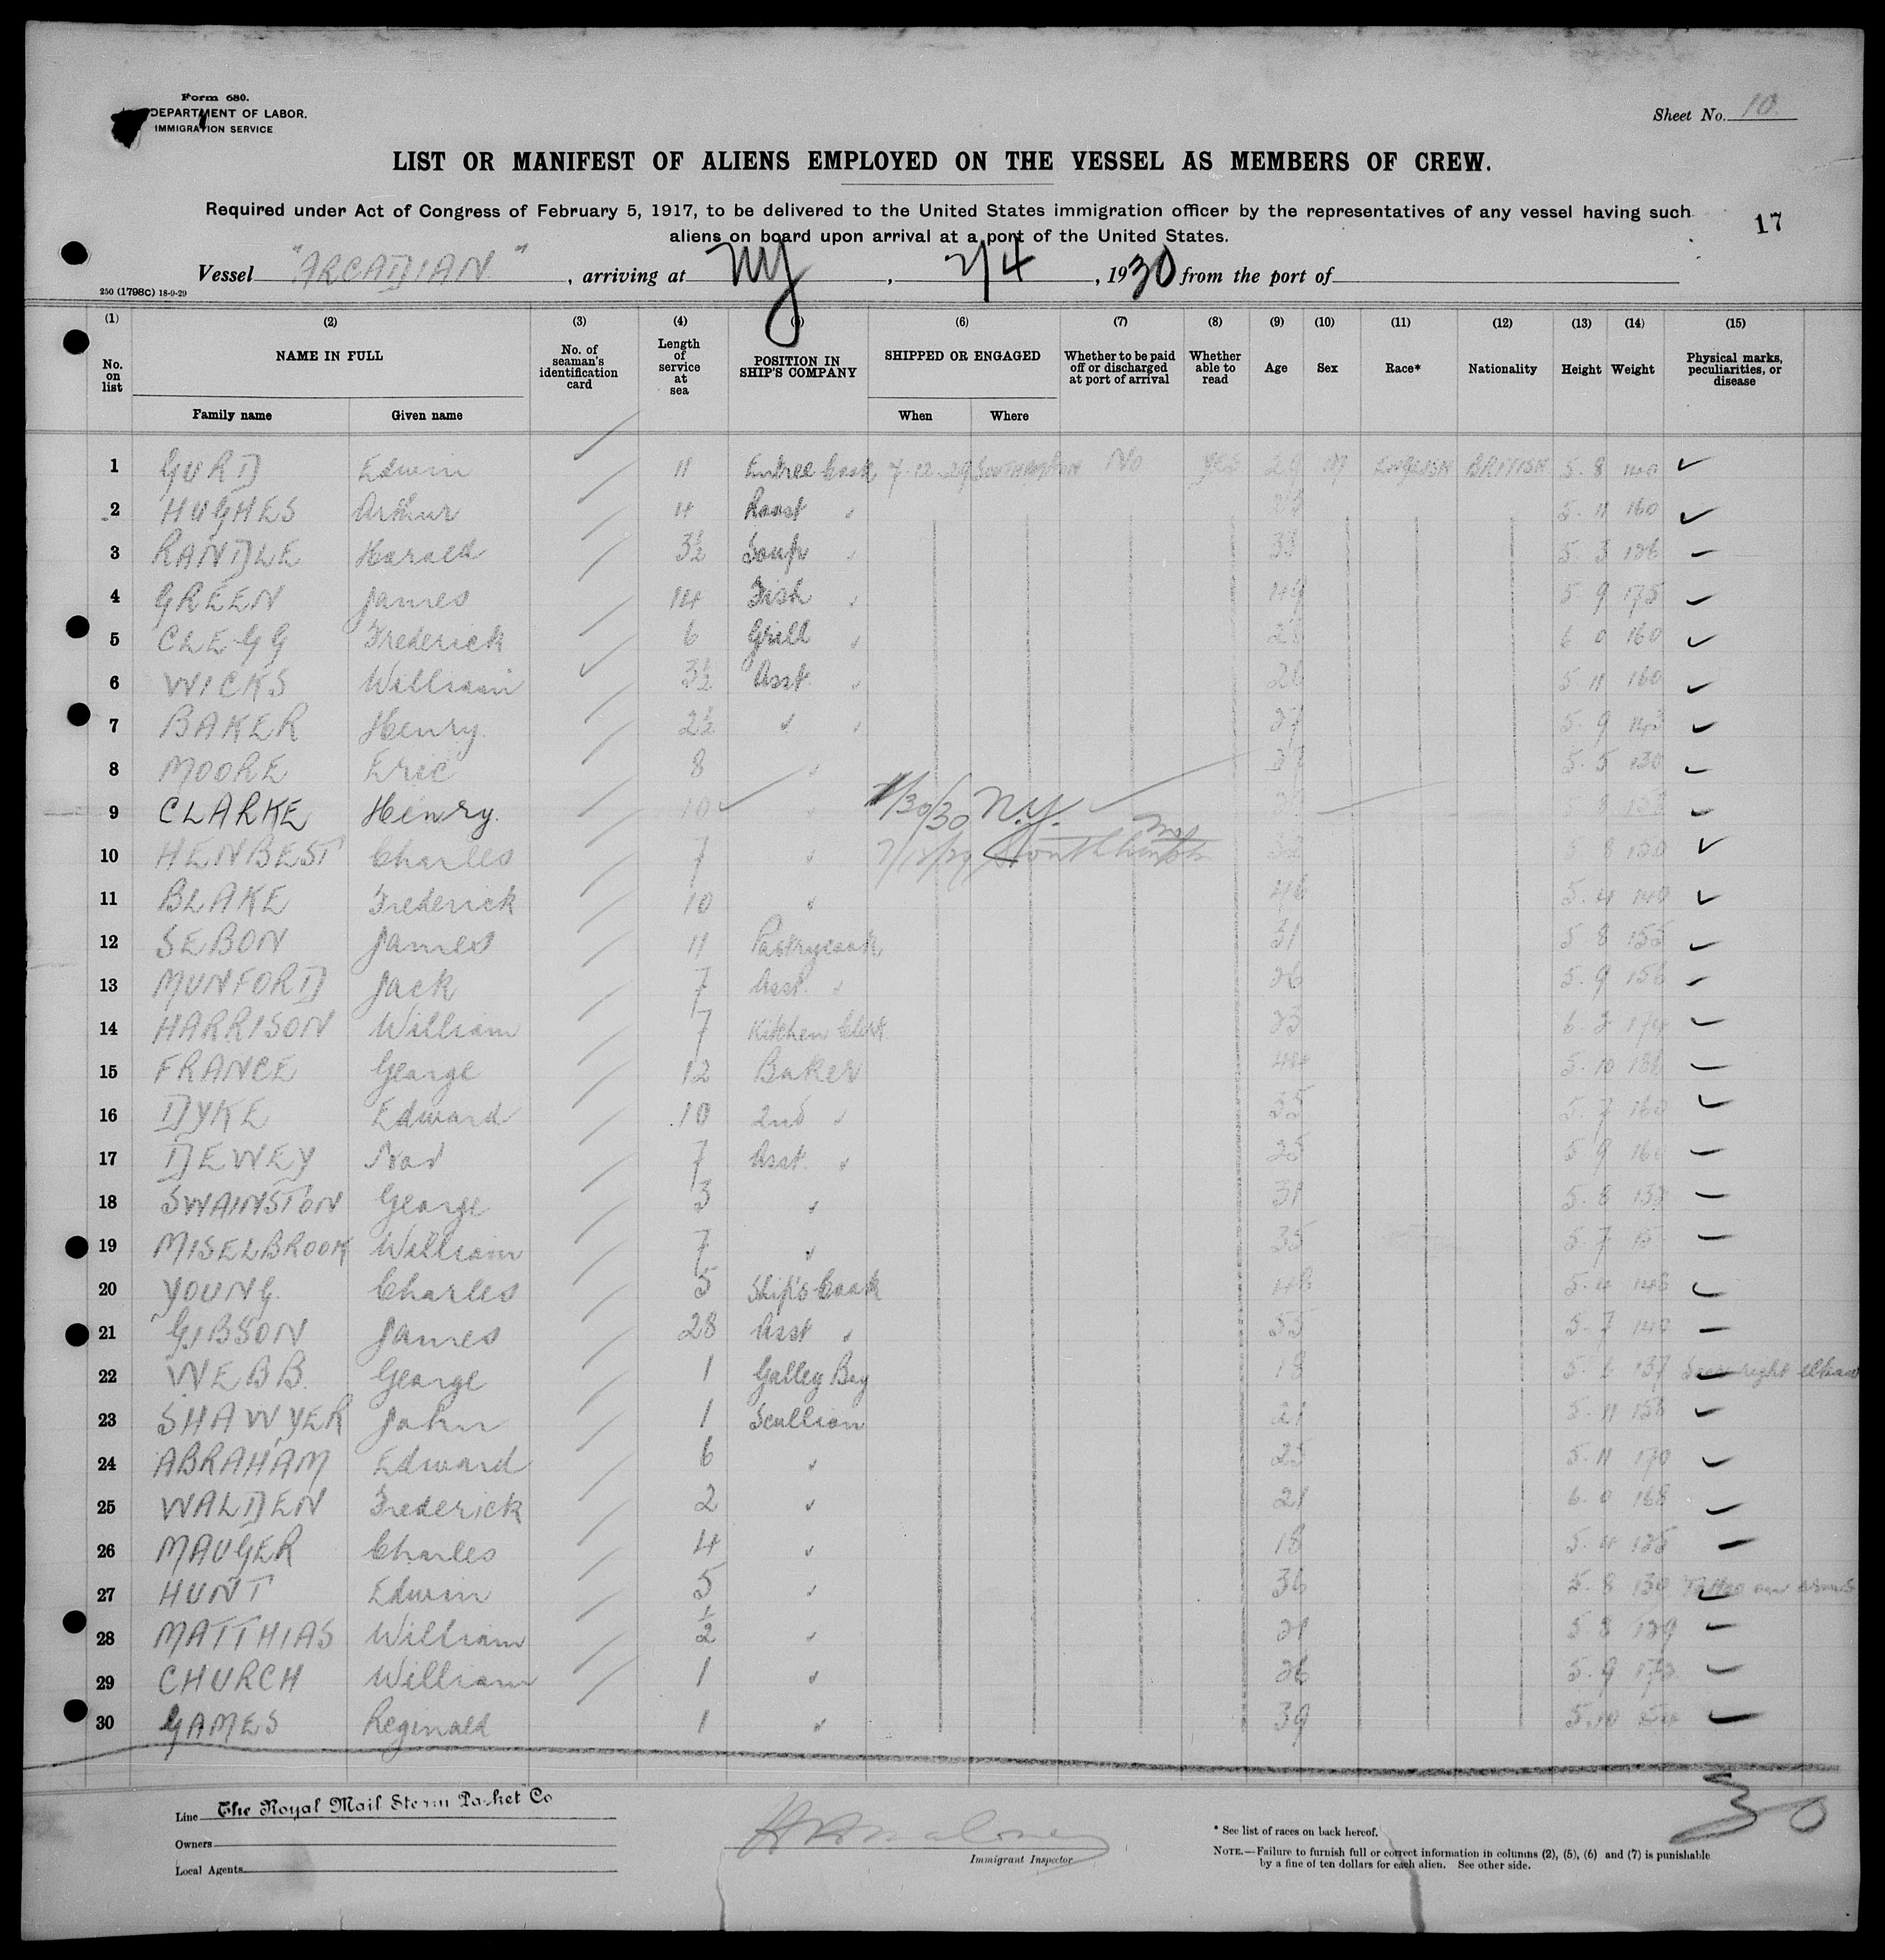 Form 680.
DEPARTMENT OF LABOR.
IMMIGRATION SERVICE
Sheet No. 10.
LIST OR MANIFEST OF ALIENS EMPLOYED ON THE VESSEL AS MEMBERS OF CREW.
Required under Act of Congress of February 5, 1917, to be delivered to the United States immigration officer by the representatives of any vessel having such
aliens on board upon arrival at a port of the United States.
17
Vessel "ARCADIAN", arriving at NY, 2/4, 1930 from the port of
250 (1798C) 18-9-29
(1) (2) (3) (4) (5) (6) (7) (8) (9) (10) (11) (12) (13) (14) (15)
No. on list NAME IN FULL No. of seaman's identification card Length of service at sea POSITION IN SHIP'S COMPANY SHIPPED OR ENGAGED Whether to be paid off or discharged at port of arrival Whether able to read Age Sex Race* Nationality Height Weight Physical marks, peculiarities, or disease
Family name Given name When Where
1 GURD Edwin 11 Entree Cook 7-12-29 SOUTHAMPTON NO YES 29 M ENGLISH BRITISH 5-8 140
2 HUGHES Arthur Roast " 5-11 160
3 RANDLE Harold 3½ Soup " 5-3 126
4 GREEN James 14 Fish " 49 5 9 175
5 CLEGG Frederick 6 Grill " 6 0 160
6 WICKS William 3½ Asst " 26 5-11 160
7 BAKER Henry 2½ " " 27 5-9
8 MOORE Eric 8 " 5-5 130
9 CLARKE Henry. 10 1/30/30 N.Y.
10 HENBEST Charles 7 " 7/12/29 Southampton No 5 8 150
11 BLAKE Frederick 10 " 46 5-4 140
12 SEBON James 11 Pastrycook 31 5 8 155
13 MUNFORD Jack 7 Asst. " 26 5-9 156
14 HARRISON William 7 Kitchen Clerk 23 6-2 174
15 FRANCE George 12 Baker 44 5-10
16 DYKE Edward 10 2nd " 35 5-7 160
17 DEWEY 7 Asst. " 25 5 9
18 SWAINSTON George 3 " 31 5-8
19 MISELBROOK William 7 " 35 5-7
20 YOUNG. Charles 5 Ship's Cook 48 5-4 148
21 GIBSON James 28 Asst " 55 5-7 140
22 WEBB. George 1 Galley Boy 18 137 Scar right elbow
23 SHAWYER John 1 Scullion 21 5-11
24 ABRAHAM Edward 6 " 25 5-11 170
25 WALDEN Frederick 2 " 21 6-0 168
26 MAUGER Charles 4 " 18 5-4 125
27 HUNT Edwin 5 " 36 5-8 130 Tattoo on arms
28 MATTHIAS William ½ " 21 5 8 129
29 CHURCH William 1 " 26 5-9
30 GAMES Reginald 1 " 39 5.10
30
Line The Royal Mail Steam Packet Co
Owners
Local Agents
Immigrant Inspector
* See list of races on back hereof.
NOTE.—Failure to furnish full or correct information in columns (2), (5), (6) and (7) is punishable
by a fine of ten dollars for each alien. See other side.